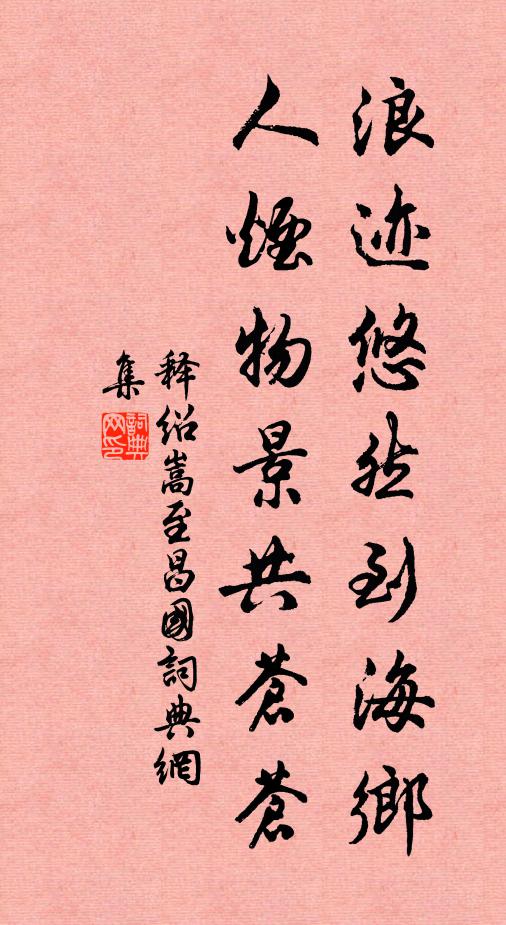 浪迹悠然到海鄉
人煙物景共蒼蒼
释绍嵩至昌國詞典網
集
詞典网印